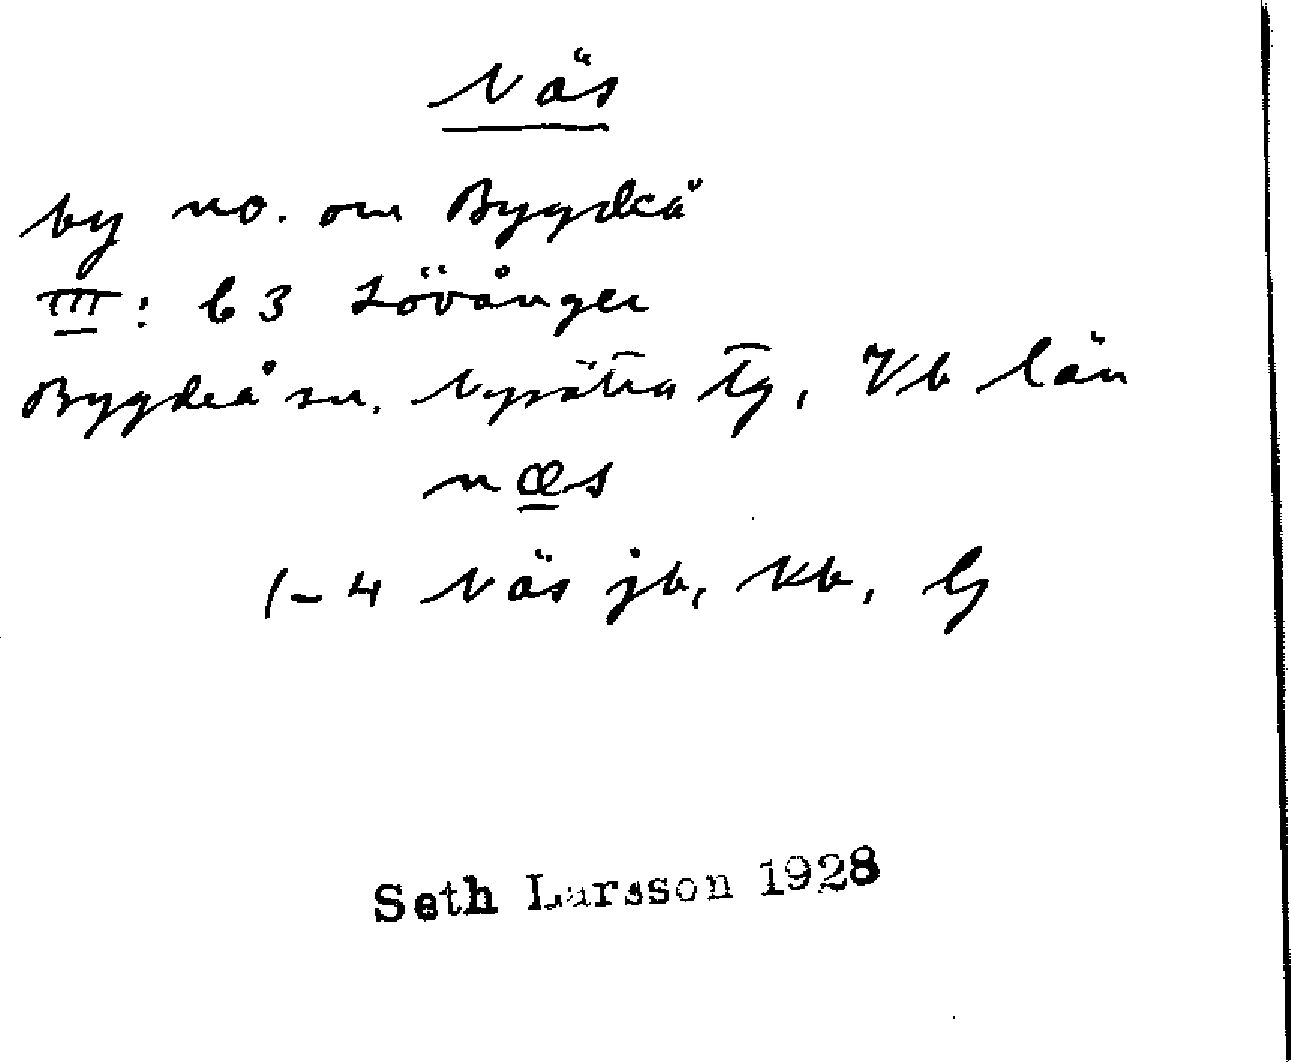 Näs
by no. om Bygdeå
III: b 3 Lövånger
Bygdeå sn. Nysätra tg, Vb län
næs
1-4 Näs jb, kb, lj
Seth Larsson 1928